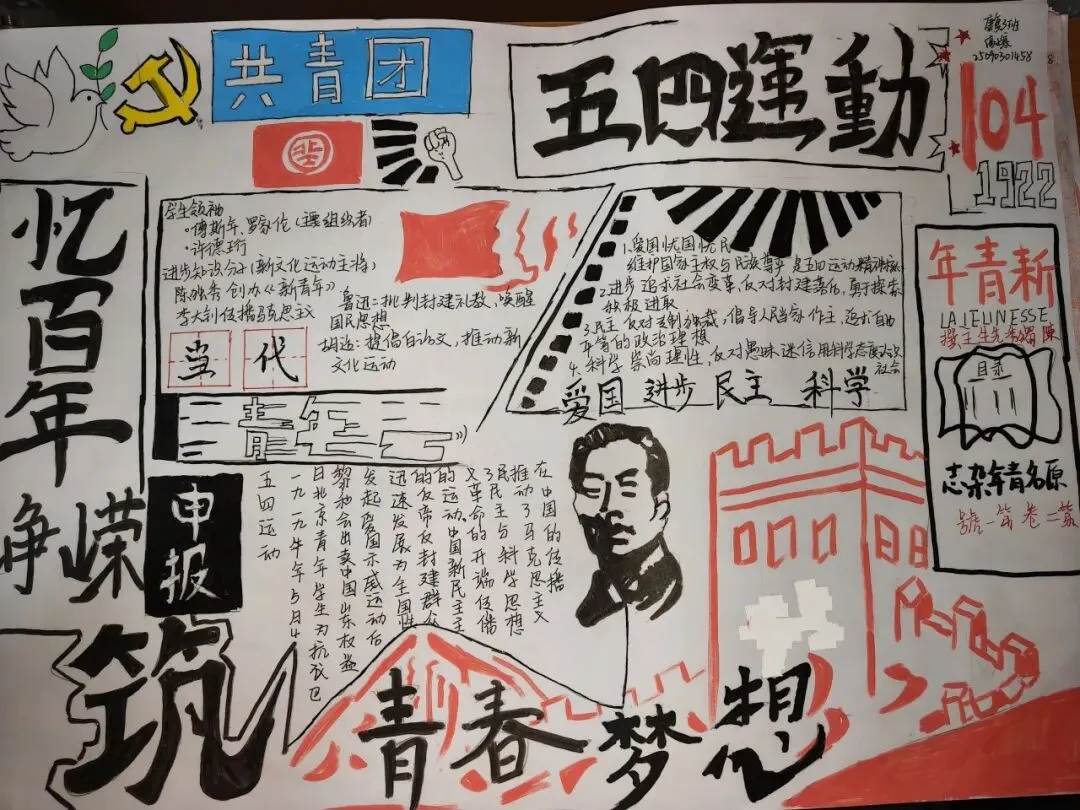 共青团
五四運動
8.
25090301458
04
1922
忆百年
峥嵘
学生领袖
·傅斯年、罗家伦(主要组织者)
·许德珩
进步知识分子(新文化运动主将)
陈独秀 创办《新青年》
李大钊 传播马克思主义
鲁迅:批判封建礼教,唤醒
国民思想
胡适:提倡白话文,推动新
文化运动
当代
1.爱国忧国忧民
维护国家主权与民族尊严 是五四运动精神
2.进步 追求社会变革,反对封建落后,勇于探索
积极进取
3.民主 反对专制独裁,倡导人民当家作主,追求自由
平等的政治理想
4.科学 崇尚理性,反对愚昧迷信 用科学态度
社会
爱国 进步 民主 科学
年青新
LA JEUNESSE
撰主生先秀獨陳
目录
志杂年青名原
號一第卷二第
申报
五四运动
一九一九年5月4
日北京青年学生为抗议巴
黎和会出卖中国山东权益
发起爱国示威运动后
迅速发展为全国性
的反帝反封建群众
的运动。中国新民主主
义革命的开端传播
了民主与科学思想
推动了马克思主义
在中国的传播
筑
青春
梦想